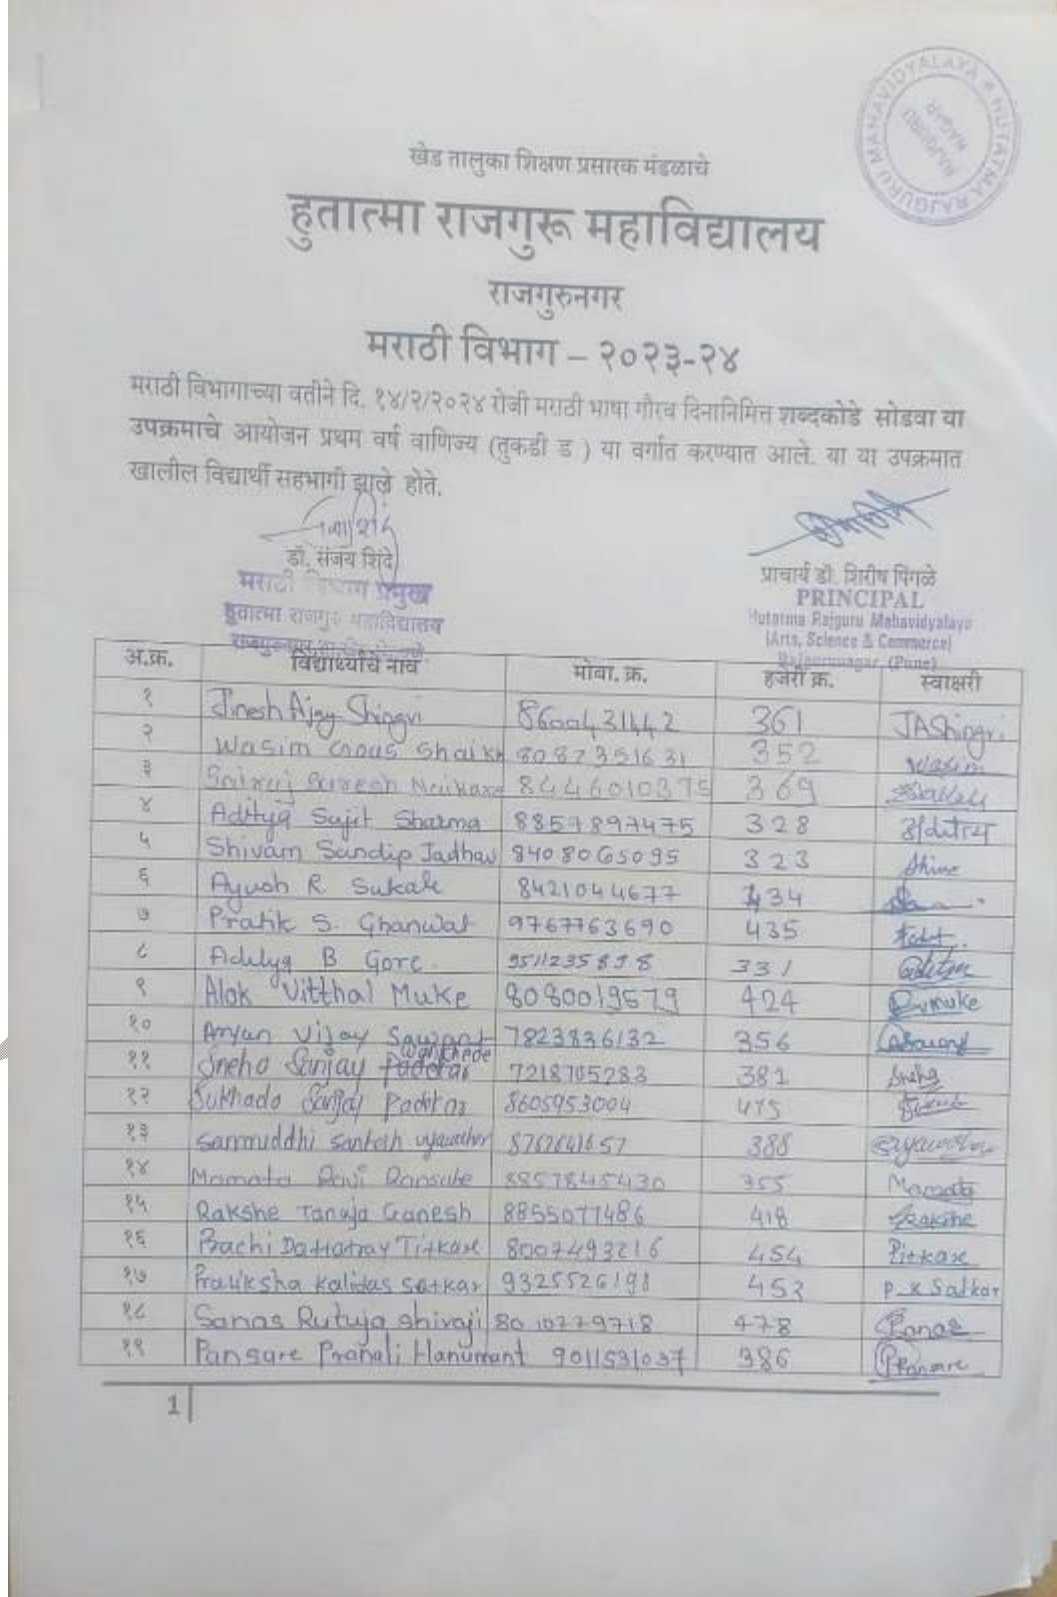 HUTATMA RAJGURU MAHAVIDYALAYA
RAJGURU
NAGAR
खेड तालुका शिक्षण प्रसारक मंडळाचे
हुतात्मा राजगुरू महाविद्यालय
राजगुरुनगर
मराठी विभाग – २०२३-२४
मराठी विभागाच्या वतीने दि. १४/२/२०२४ रोजी मराठी भाषा गौरव दिनानिमित्त शब्दकोडे सोडवा या
उपक्रमाचे आयोजन प्रथम वर्ष वाणिज्य (तुकडी ड ) या वर्गात करण्यात आले. या या उपक्रमात
खालील विद्यार्थी सहभागी झाले होते.
डॉ. संजय शिंदे
मराठी विभाग प्रमुख
हुतात्मा राजगुरु महाविद्यालय
प्राचार्य डॉ. शिरीष पिंगळे
PRINCIPAL
Hutatma Rajguru Mahavidyalaya
(Arts, Science & Commerce)
Rajgurunagar (Pune)
अ.क्र. विद्यार्थ्याचे नाव मोबा. क्र. हजेरी क्र. स्वाक्षरी
१ Jinesh Ajay Shingvi 8600431442 361 JAShingvi
२ Wasim Gous Shaikh 8087351631 352 Wasim
३ Sairaj Suresh 8446010375 369
४ Aditya Sujit Sharma 8857897475 328 आदित्य
५ Shivam Sandip Jadhav 8408065095 323
६ Ayush R. Sukale 8421044677 434
७ Pratik S. Ghanwat 9767763690 435
८ Aditya B Gore. 331 Aditya
९ Alok Vitthal Muke 8080019579 424
१० Aryan Vijay Sawant 7823836132 356
११ Sneha Sanjay Wankhede 7218705283 381 Sneha
१२ Sukhada Sanjay 8605953004 475
१३ Sammuddhi Santosh 388
१४ Mamata Ravi Ransube 8857845430 355 Mamata
१५ Rakshe Tanuja Ganesh 8855077486 418 Rakshe
१६ Prachi Dattatray Titkare 8007493216 454 Titkare
१७ Pratiksha Kalidas Satkar 9325526198 453 P.K Satkar
१८ Sanas Rutuja Shivaji 8010279718 478 Sanas
१९ Pansare Pranali Hanumant 9011531037 386
1